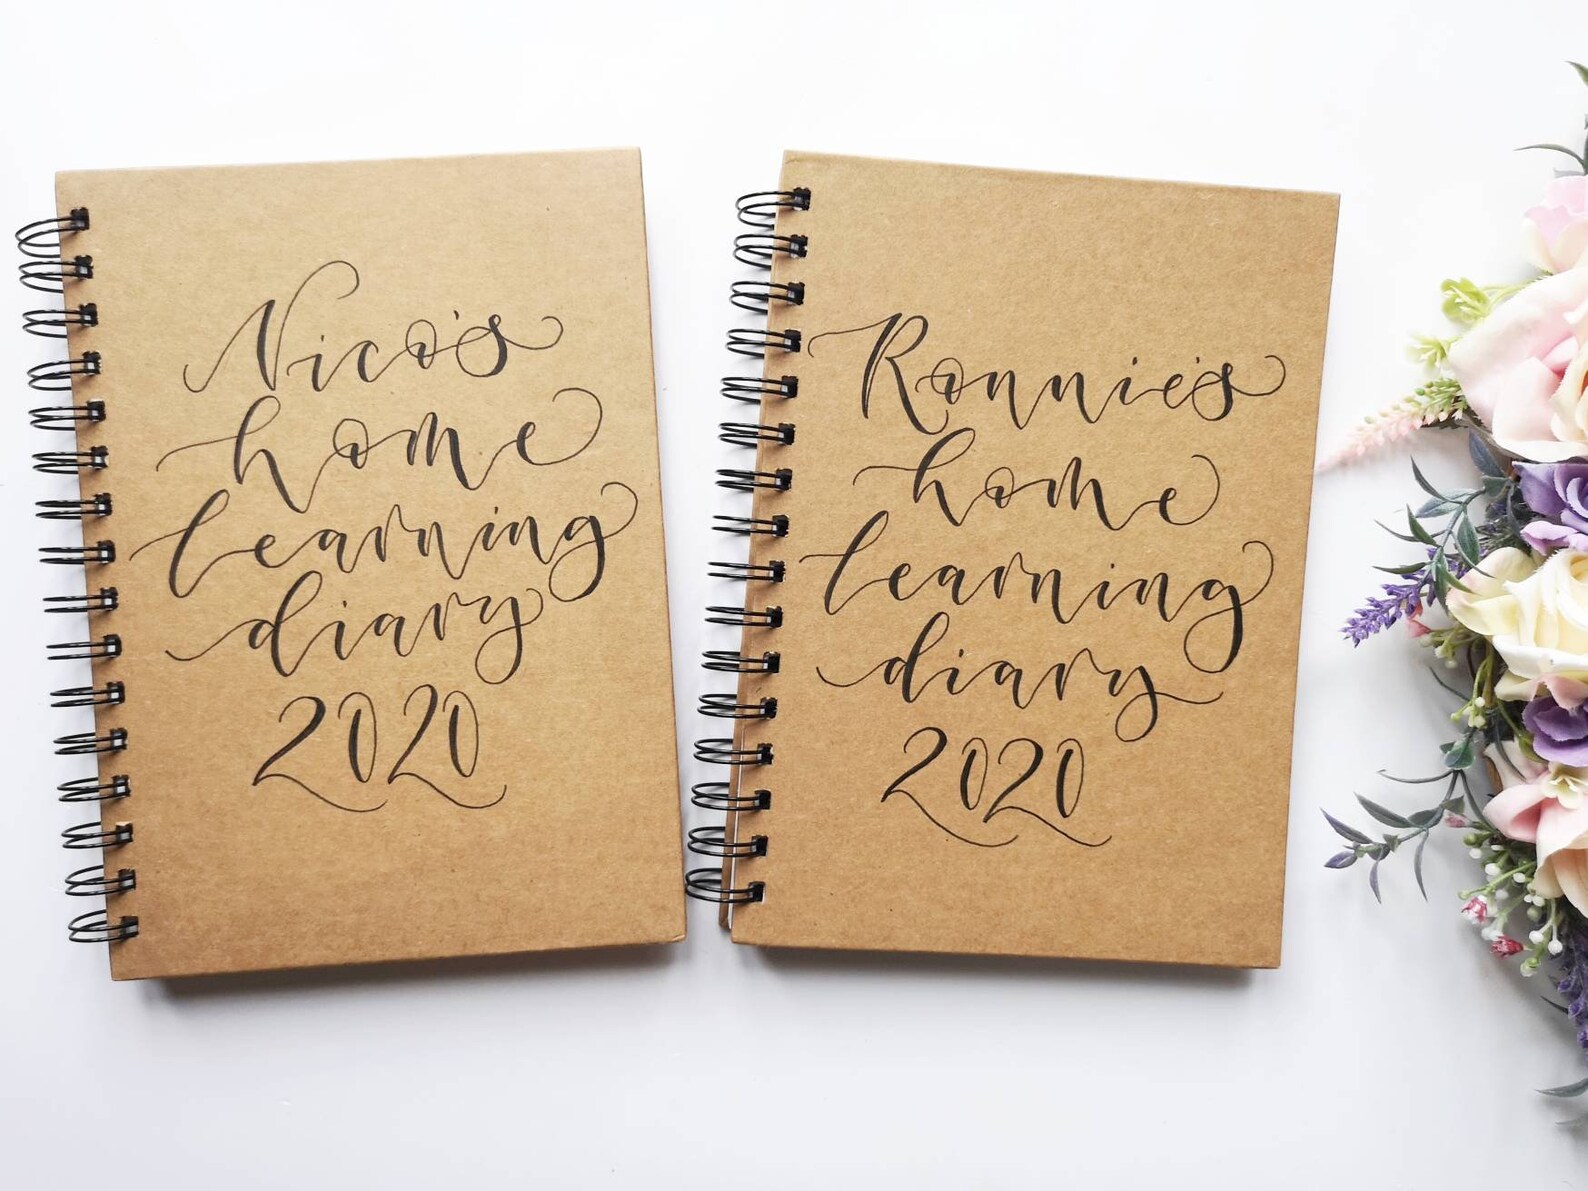 Nico's
home
learning
diary
2020
Ronnie's
home
learning
diary
2020